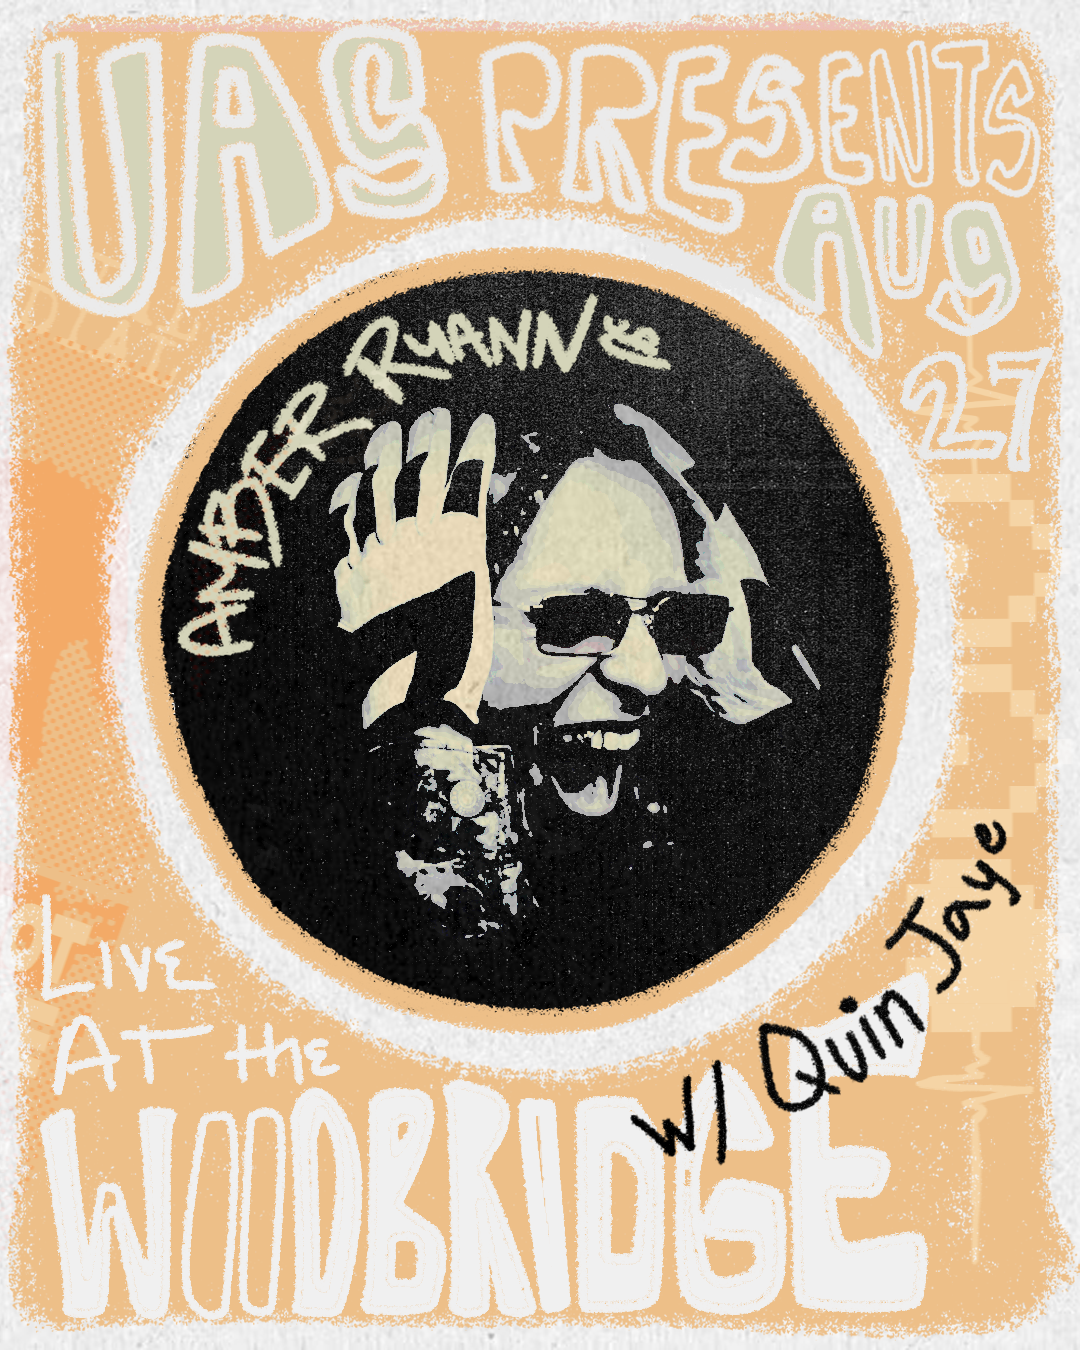 UAS PRESENTS
AUg
27
AMBER RyANN
LIVE
AT the
WOODBRIDGE
w/ Quin Jaye